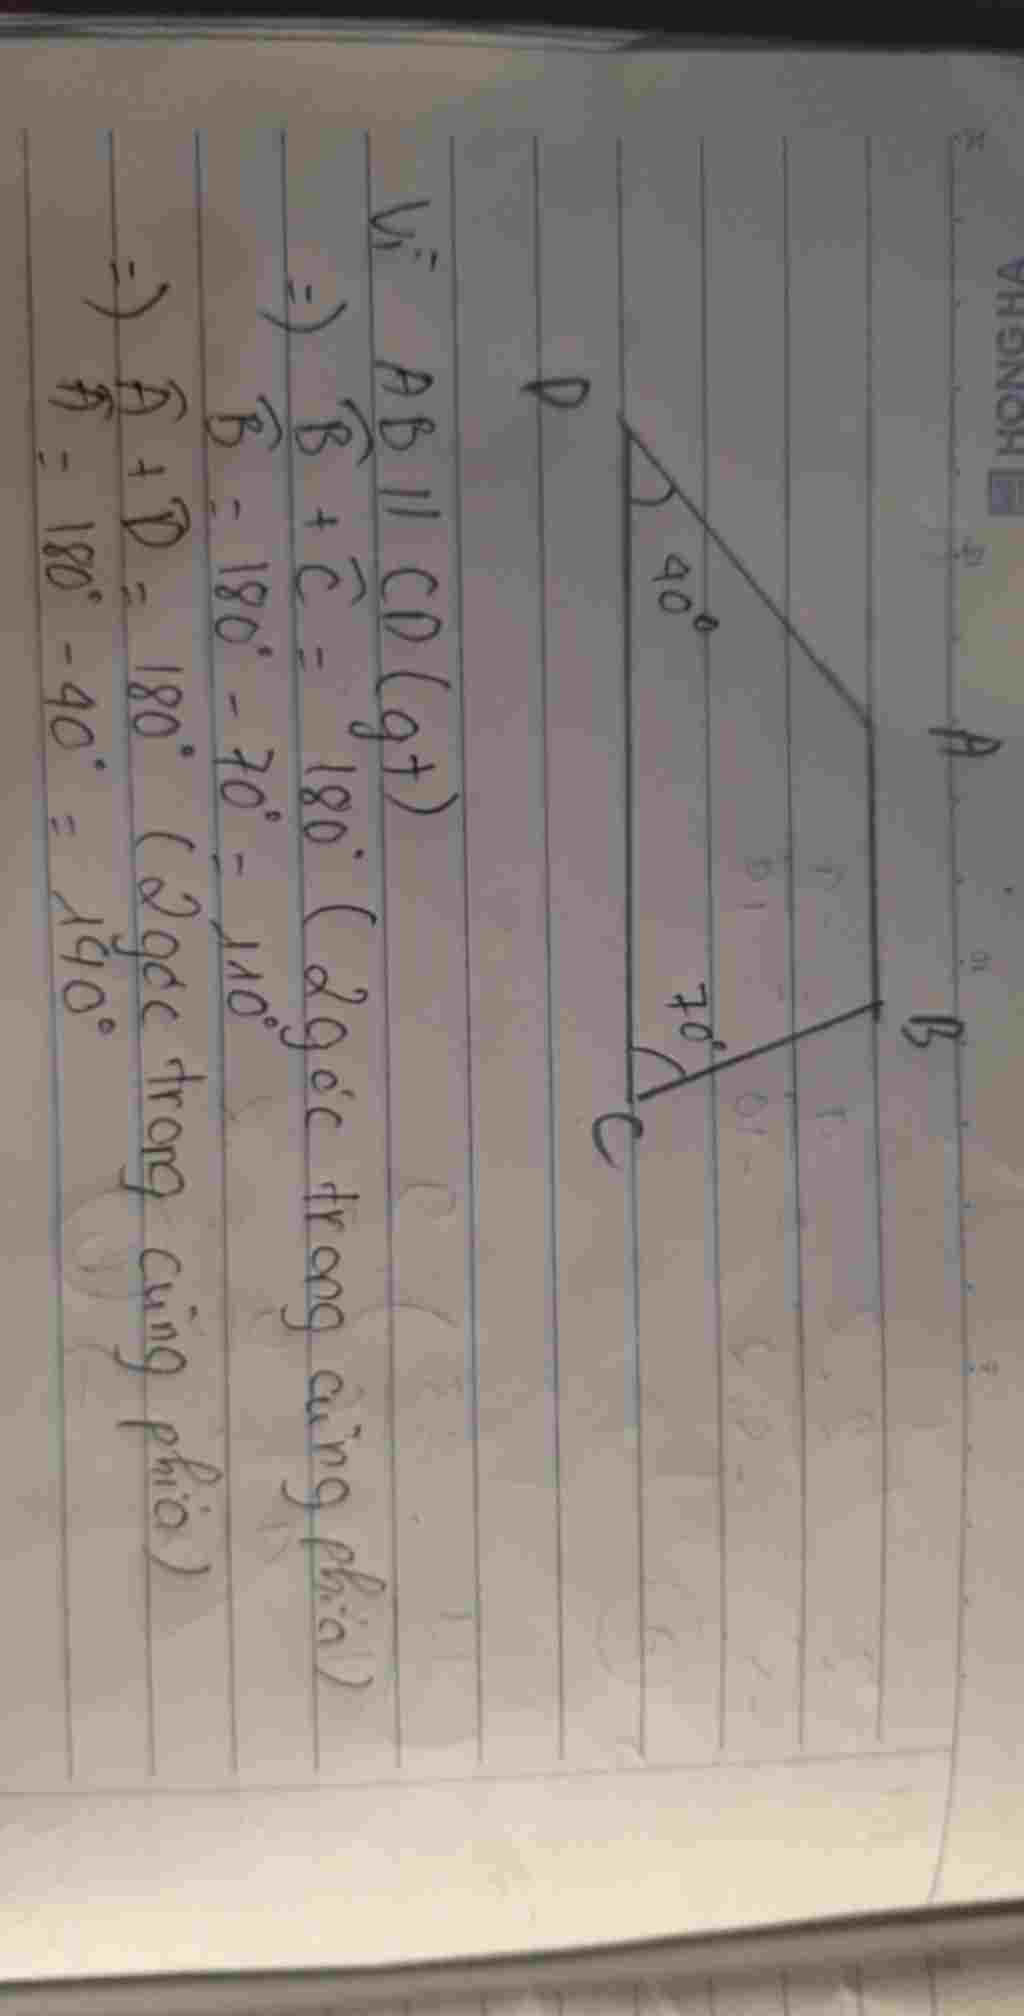 HONG HA
A
B
40°
70°
D
C
Vì AB // CD (gt)
=) B̂ + Ĉ = 180° (2 góc trong cùng phía)
B̂ = 180° - 70° = 110°
=) Â + D̂ = 180° (2 góc trong cùng phía)
 = 180° - 40° = 140°